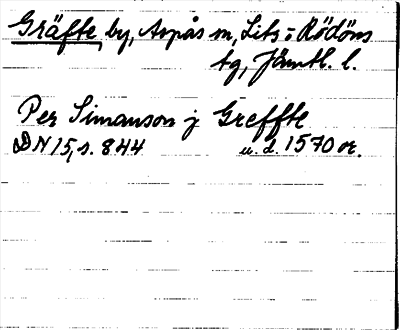 Gräfte by, Aspås sn, Lits o Rödöns
tg, Jämtl. l.
Per Simanson j Greffte
DN 15, s. 844 u. d. 1570 or.